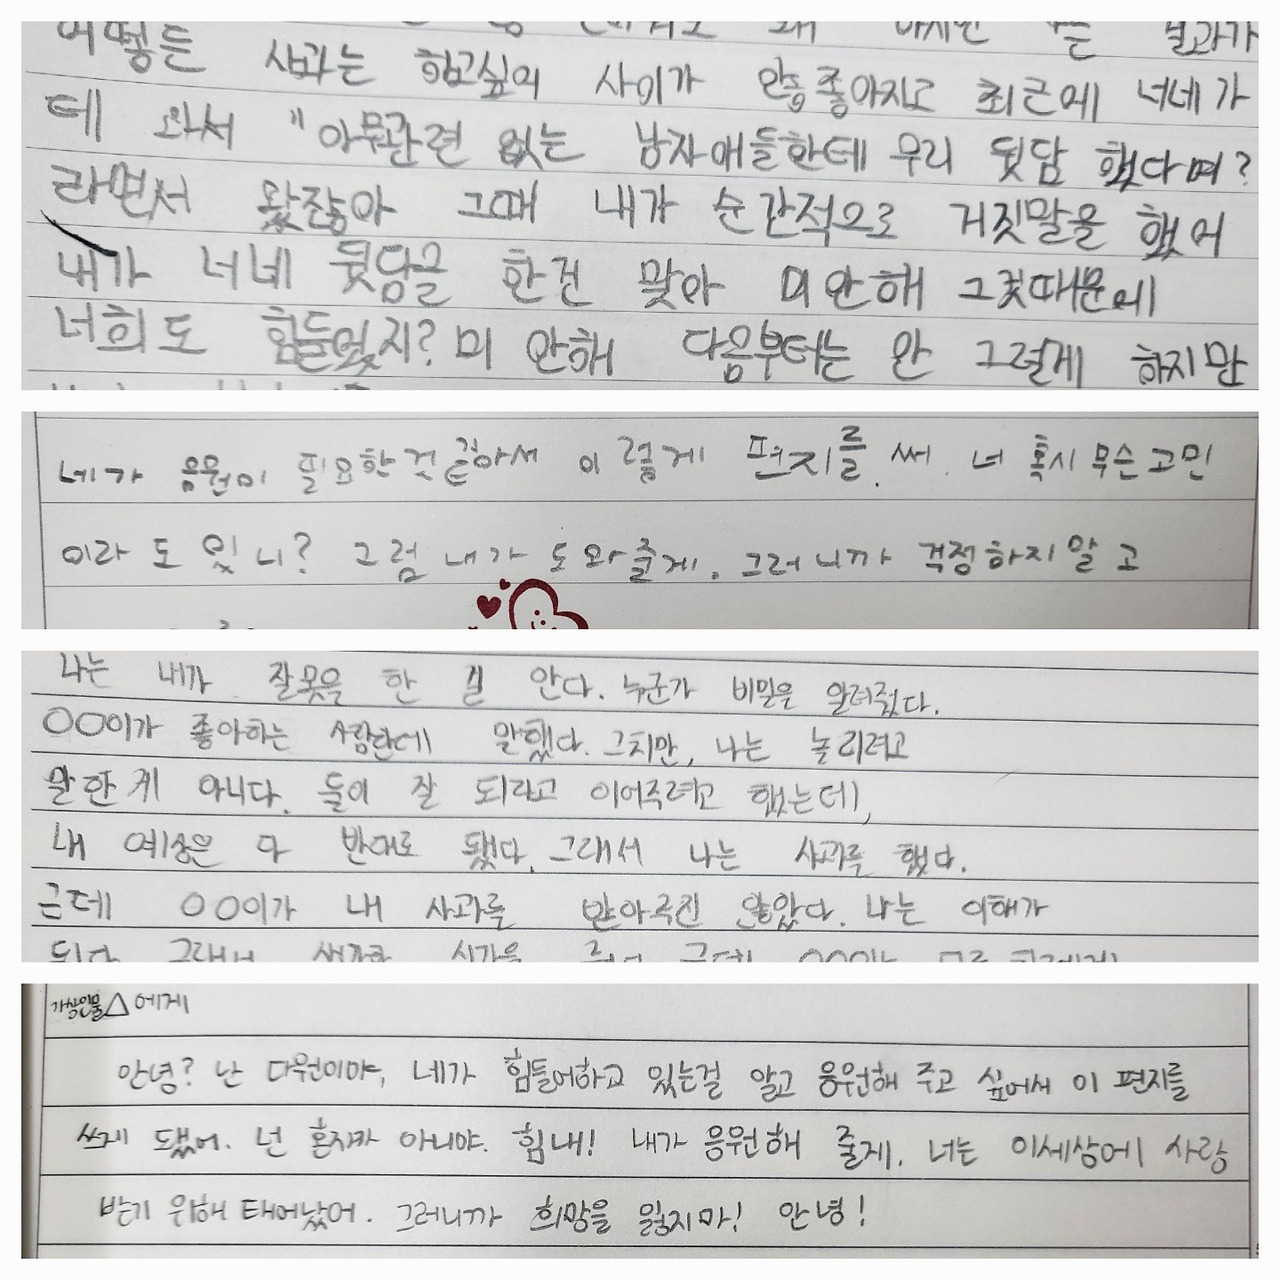 어떻든 사과는 하고싶의 사이가 안좋아지고 최근에 너네가
데 와서 "아무관련 없는 남자애들한테 우리 뒷담 했다며?
라면서 왔잖아 그때 내가 순간적으로 거짓말을 했어
내가 너네 뒷담을 한건 맞아 미안해 그것때문에
너희도 힘들었지? 미안해 다음부터는 안 그럴게 하지만
네가 응원이 필요한것 같아서 이렇게 편지를 써. 너 혹시 무슨고민
이라도 있니? 그럼 내가 도와줄게. 그러니까 걱정하지말고
나는 내가 잘못을 한 걸 안다. 누군가 비밀은 알려줬다.
OO이가 좋아하는 사람한테 말했다. 그치만, 나는 놀리려고
말한게 아니다. 둘이 잘 되라고 이어주려고 했는데,
내 예상은 다 반대로 됐다. 그래서 나는 사과를 했다.
근데 OO이가 내 사과를 받아주진 않았다. 나는 이해가
가상인물△에게
안녕? 난 다원이야, 네가 힘들어하고 있는걸 알고 응원해 주고 싶어서 이 편지를
쓰게 됐어. 넌 혼자가 아니야. 힘내! 내가 응원해 줄게. 너는 이세상에 사랑
받기 위해 태어났어. 그러니까 희망을 잃지마! 안녕!